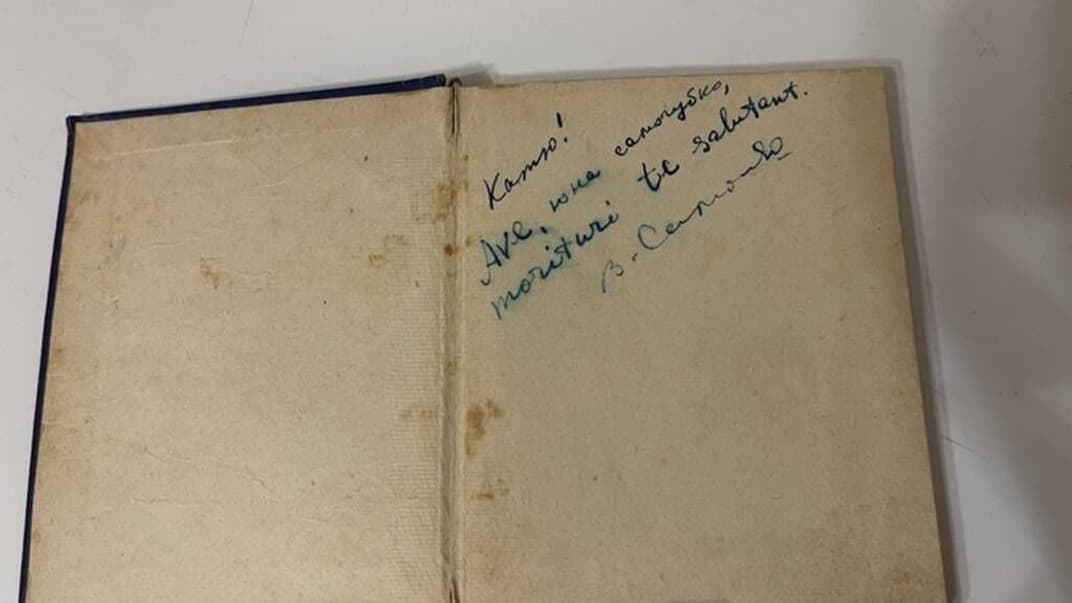 Катю!
Ave, юна самогубко,
morituri te salutant.
В.